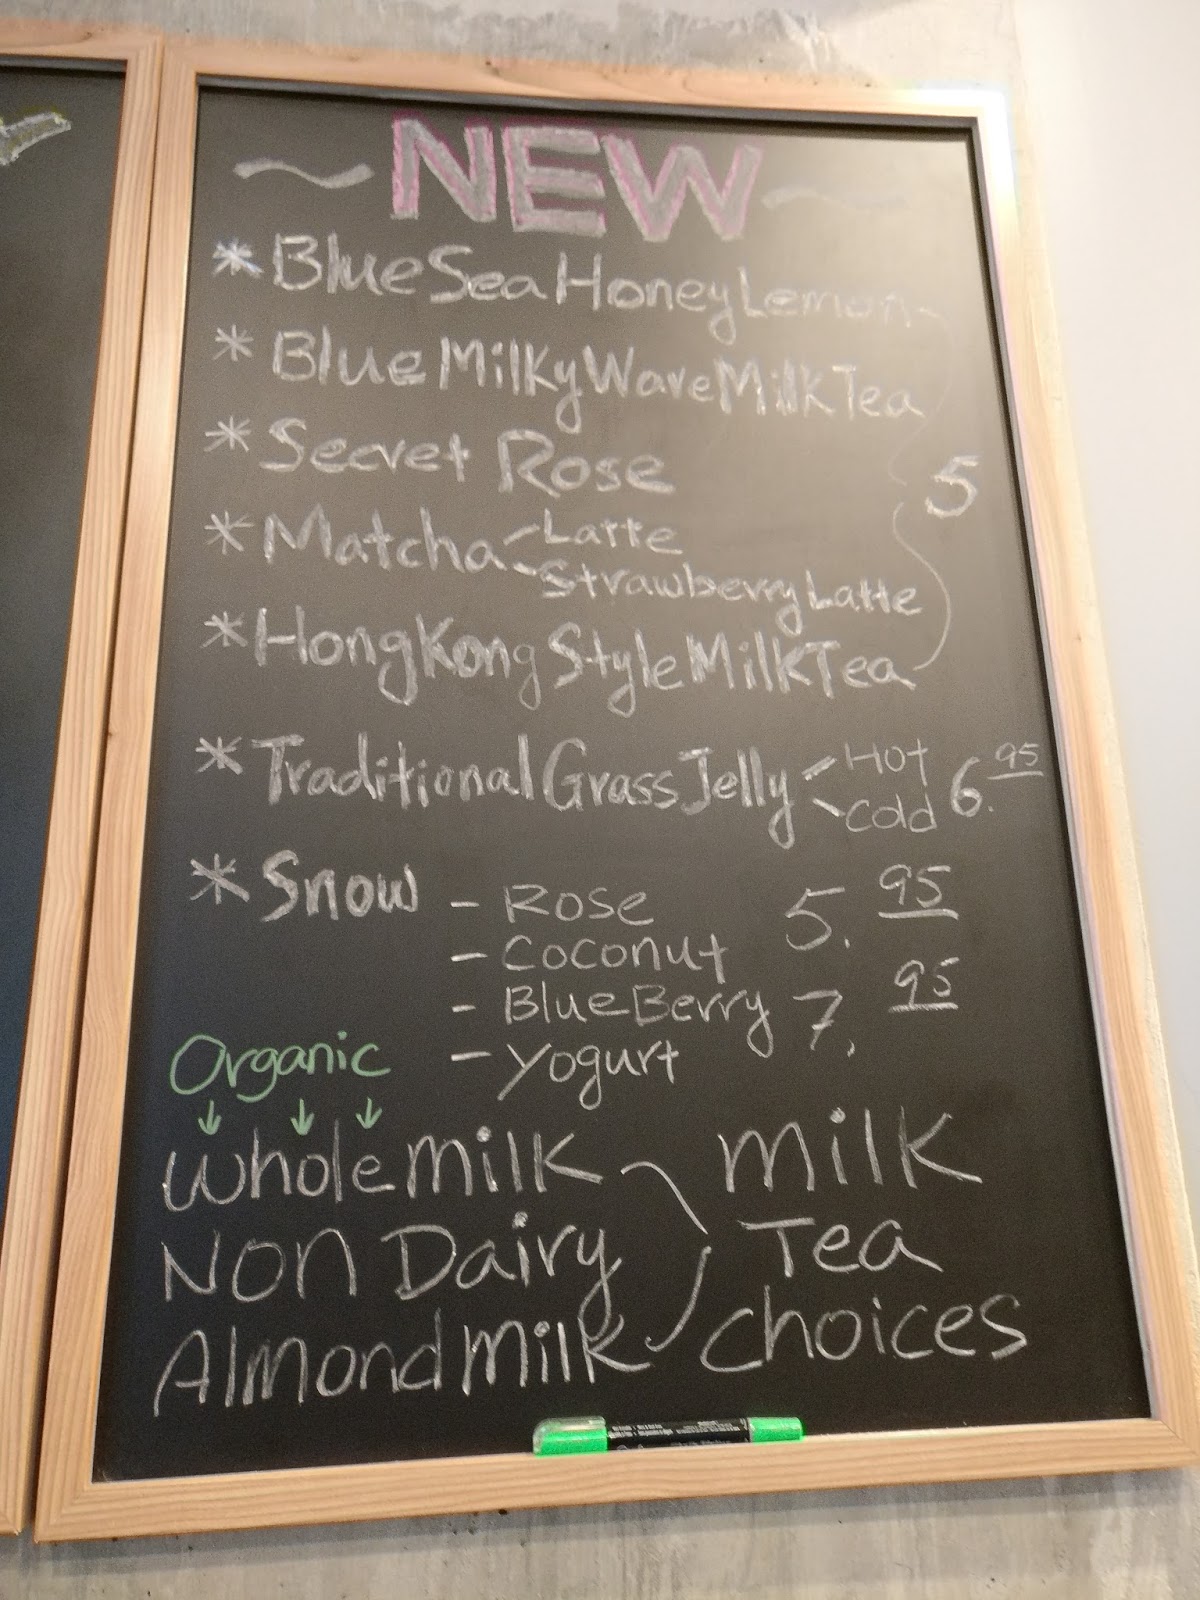 ~ NEW ~
* Blue Sea Honey Lemon
* Blue Milky Wave Milk Tea
* Secret Rose
5
* Matcha - Latte
- Strawberry Latte
* Hong Kong Style Milk Tea
* Traditional Grass Jelly < Hot Cold 6.95
* Snow - Rose 5.95
- Coconut
- BlueBerry 7.95
- Yogurt
Organic
↓ ↓ ↓
Whole milk
Non Dairy
Almond Milk
Milk
Tea
choices